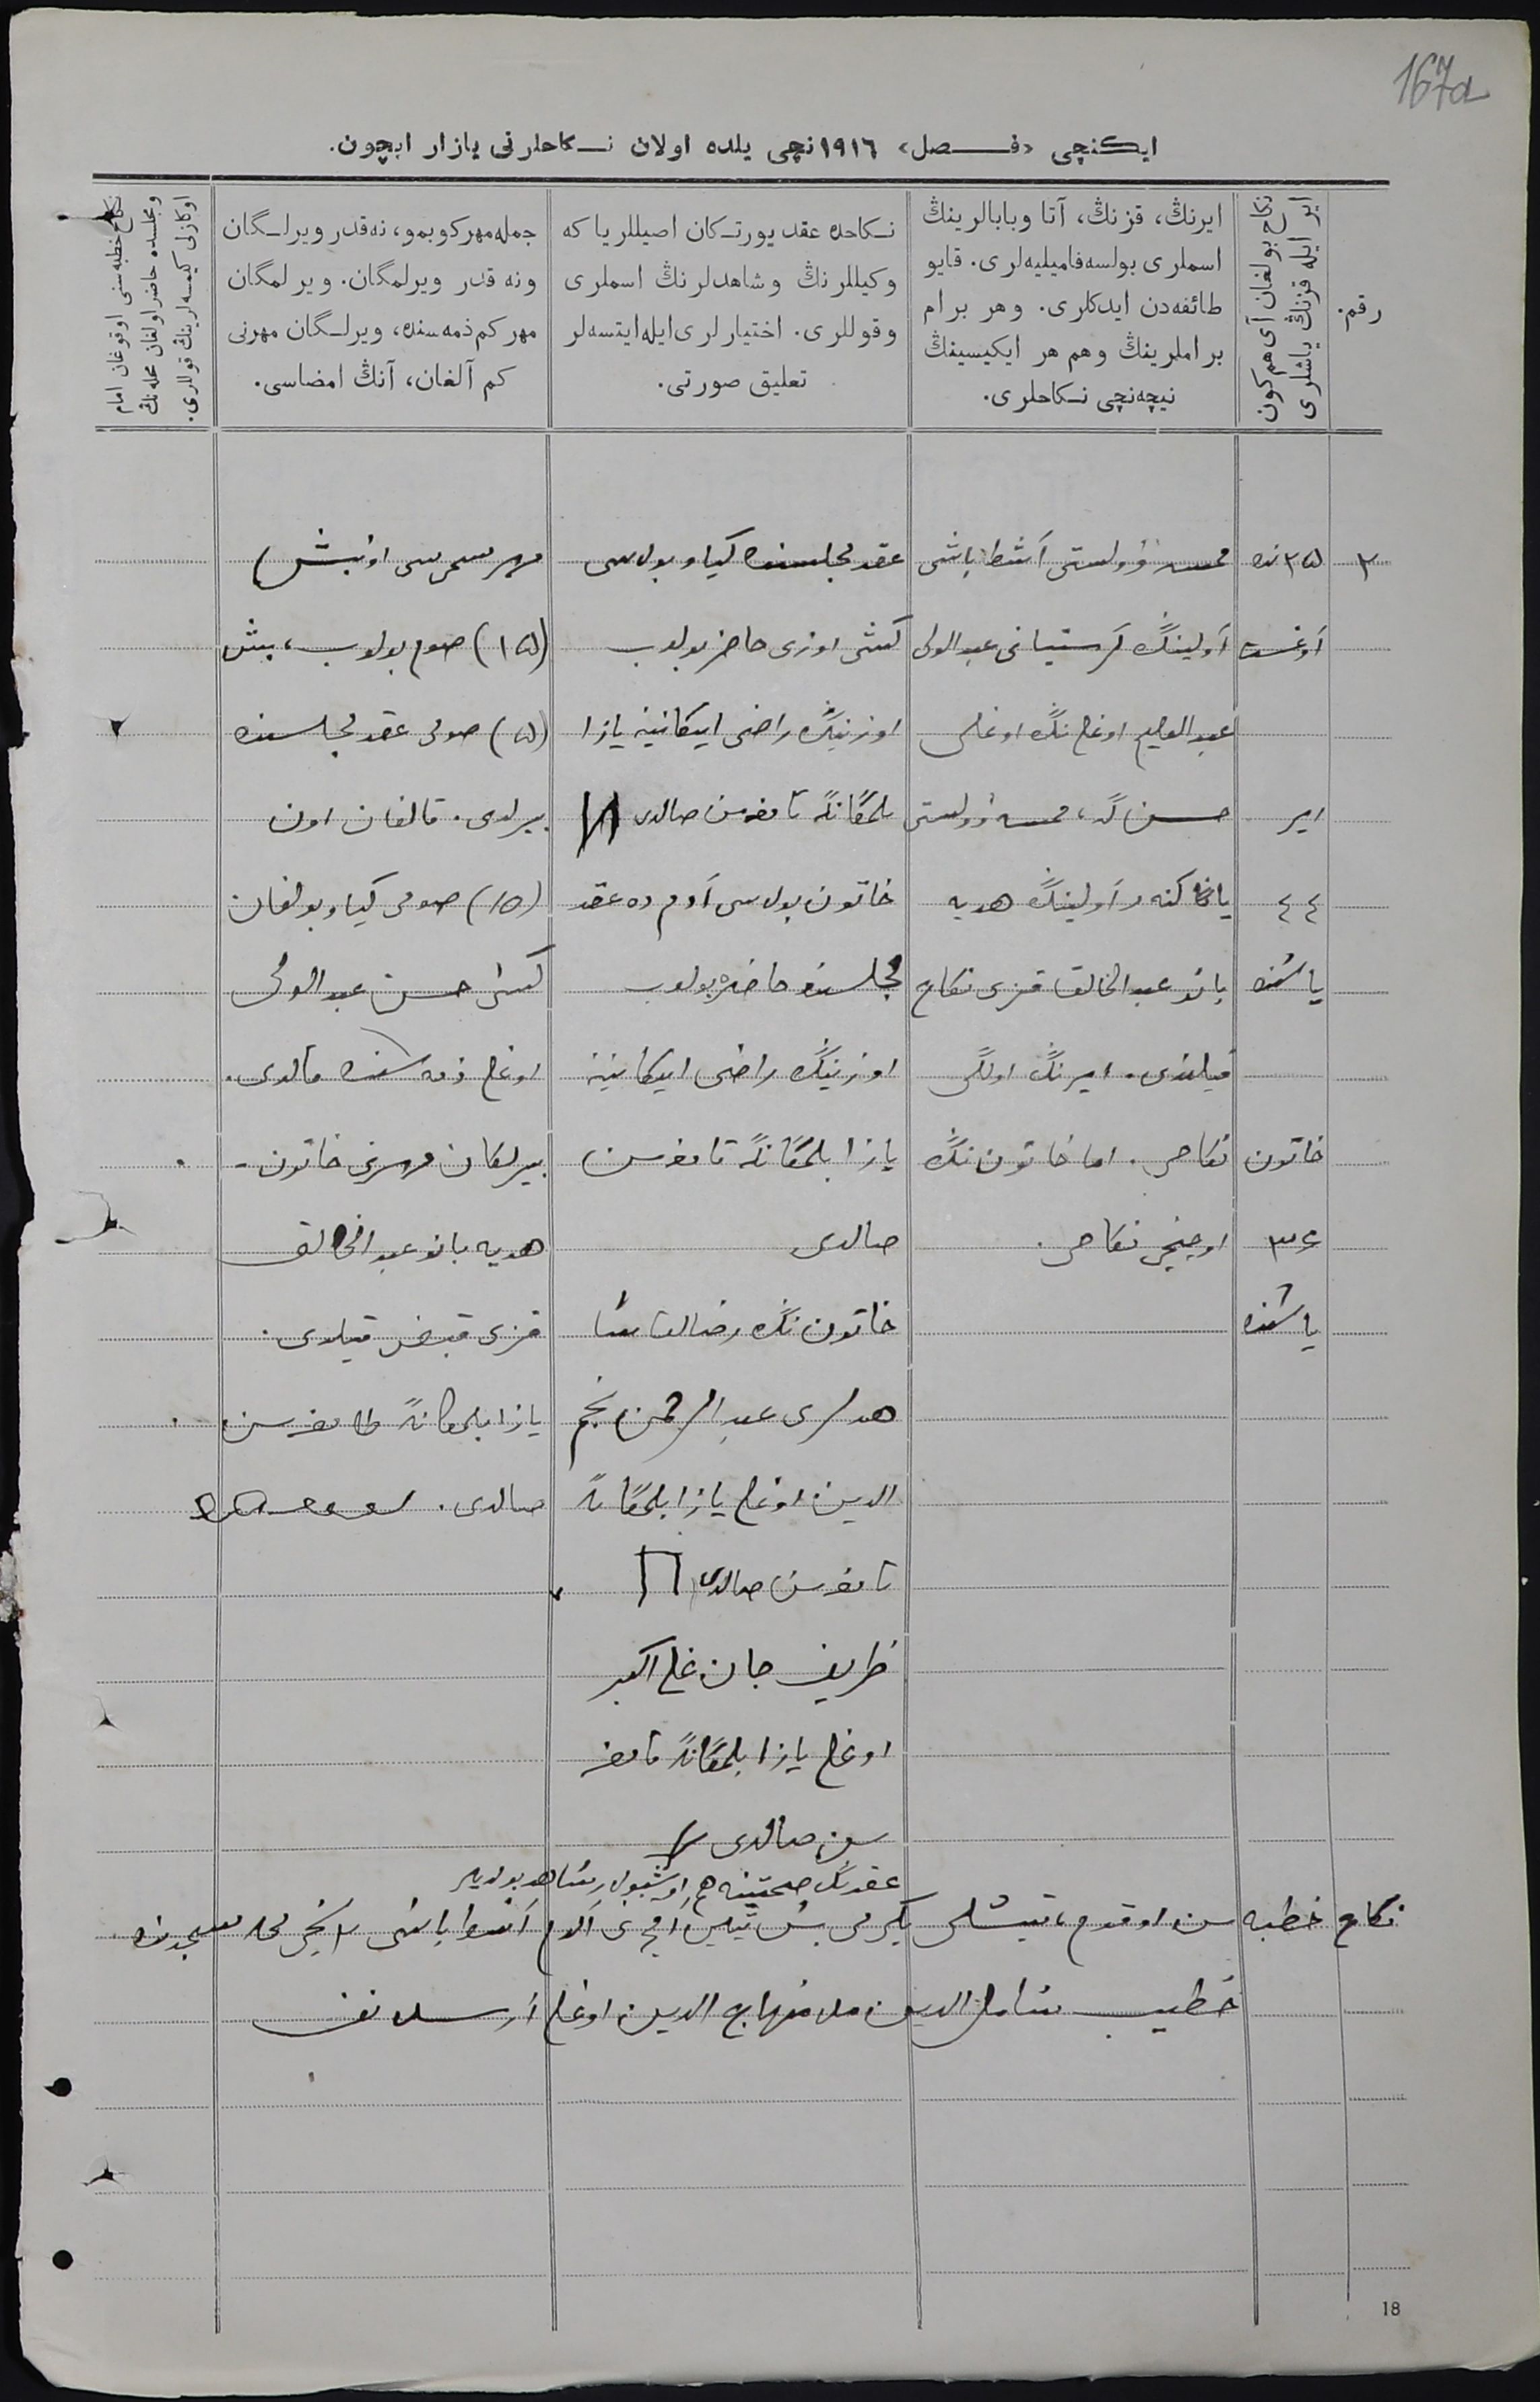 167a
ایکنچی «فصل» ١٩١٦نچی یلده اولان نکاحلرنی یازار ایچون.
رقم.
نکاح بولغان آی هم کون
ایر ایله قزنڭ یاشلری
ایرنڭ، قزنڭ، آتا وبابالرینڭ
اسملری بولسه فامیلیه‌لری. قایو
طائفه‌دن ایدکلری. وهر برام
براملرینڭ وهم هر ایکیسینڭ
نیچه‌نچی نکاحلری.
نکاحده عقد یورتکان اصیللریا که
وکیللرنڭ وشاهدلرنڭ اسملری
وقوللری. اختیارلری ایله ایتسه‌لر
تعلیق صورتی.
جمله مهر کوبمو، نه‌قدر ویرلگان
ونه قدر ویرلمگان. ویرلمگان
مهر کم ذمه سنده، ویرلگان مهرنی
کم آلغان، آنڭ امضاسی.
نکاح خطبه سنی اوقوغان امام
ومجلسده حاضر اولغان محله‌نڭ
اوکازلی کیمسه‌لرینڭ قوللری.
٢
٢٥ نده
آوغست
ایر
٤٤
یاشنده
خاتون
٣٤
یاشنده
وولستی باشی
آولینڭ کرستیانی عبدالولی
عبدالعلیم اوغلی نڭ اوغلی
حسن وولستی
آولینڭ هدیه
بانو عبدالخالق قزی نکاح
قیلندی. ایرنڭ اولگی
نکاحی. اما خاتون نڭ
اوچنچی نکاحی.
عقد مجلسنده کیاو بولاسی
کشی اوزی حاضر بولوب
اوزینڭ راضی ایکانینه یازا
بلمگانگه تامغاسن صالدی
خاتون بولاسی آدم ده عقد
مجلسنده حاضره بولوب
اوزینڭ راضی ایکانینه
یازا بلمگانگه تامغاسن
صالدی
خاتون نڭ رضالغنا شا
هدلری عبدالرحمن نجم
الدین اوغلی یازا بلمگانگه
تامغاسن صالدی
ظریف جان علی اکبر
اوغلی یازا بلمگانگه تامغا
سن صالدی
عقدنڭ صحتینه هم اوشبولر شاهد بولدیلر
مهر اونبش
(١٥) صوم بولوب، بیش
(٥) صومی عقد مجلسنده
بیرلدی. قالغان اون
(١٥) صومی کیاو بولغان
کشی حسن عبدالولی
اوغلی ذمه سنده قالدی.
بیرلگان مهرنی خاتون -
هدیه بانو عبدالخالق
قزی قبض قیلدی.
یازا بلمگانگه طامغاسن
صالدی.
نکاح خطبه سن اوقدم، تیشلی یکرمی بش تین آقچه نی آلدم باشی ٢ نچی محله مسجدنده
خطیب شامل الدین ملا منهاج الدین اوغلی آرسلانف
18